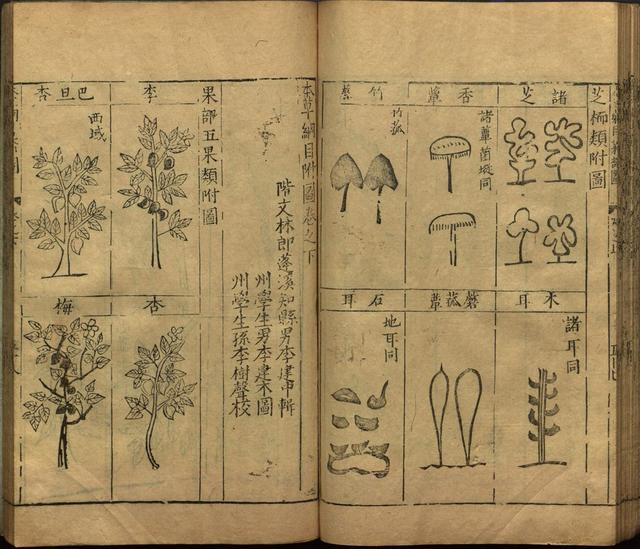 芝栭類附圖
諸芝
香蕈
諸蕈菌同
竹蓐
竹菰
木耳
諸耳同
蘑菰蕈
石耳
地耳同
本草綱目附圖卷之下
階文林郎蓬溪知縣男李建中輯
州學生男李建木圖
州學生孫李樹聲校
果部五果類附圖
李
巴旦杏
西域
杏
梅